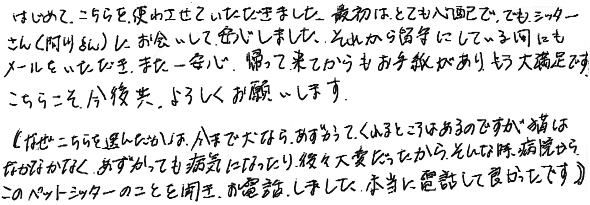 はじめて、こちらを使わさせていただきました。最初は、とても心配で、でも、シッター
さん(阿川さん)に、お会いして、安心しました。それから留守にしている間にも
メールをいただき、また一安心。帰って来てからもお手紙があり、もう大満足です。
こちらこそ、今後共、よろしくお願いします。
《なぜこちらを選んだかは、今まで犬なら、あずかって、くれるところはあるのですが、猫は
なかなかなく、あずかっても病気になったり、後々大変だったから、そんな時、病院から
このペットシッターのことを聞き、お電話、しました。本当に電話して良かったです》